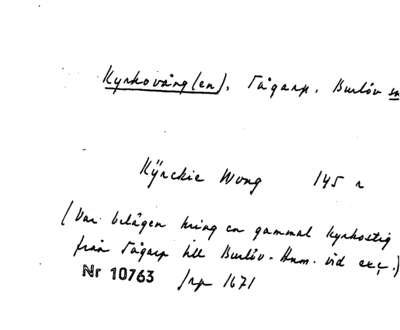 Kyrkovång(en), Tågarp. Burlöv sn
Kÿrckie Wong 145 r
(Var belägen kring en gammal kyrkostig
från Tågarp till Burlöv. Anm. vid exc.)
Nr 10763 Jrp 1671